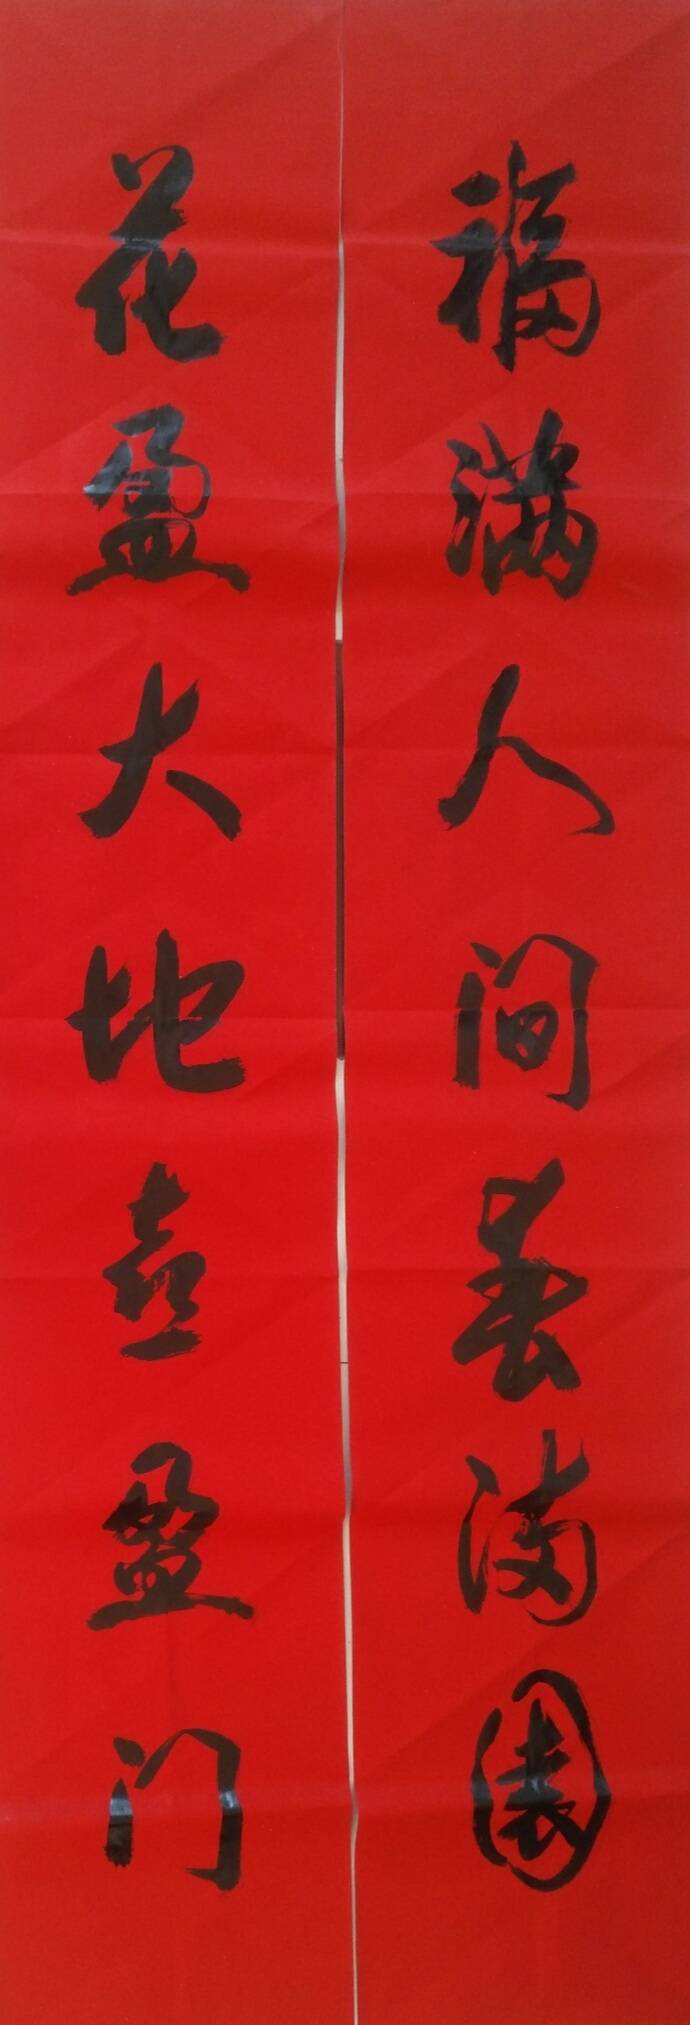 福满人间春满园
花盈大地喜盈门